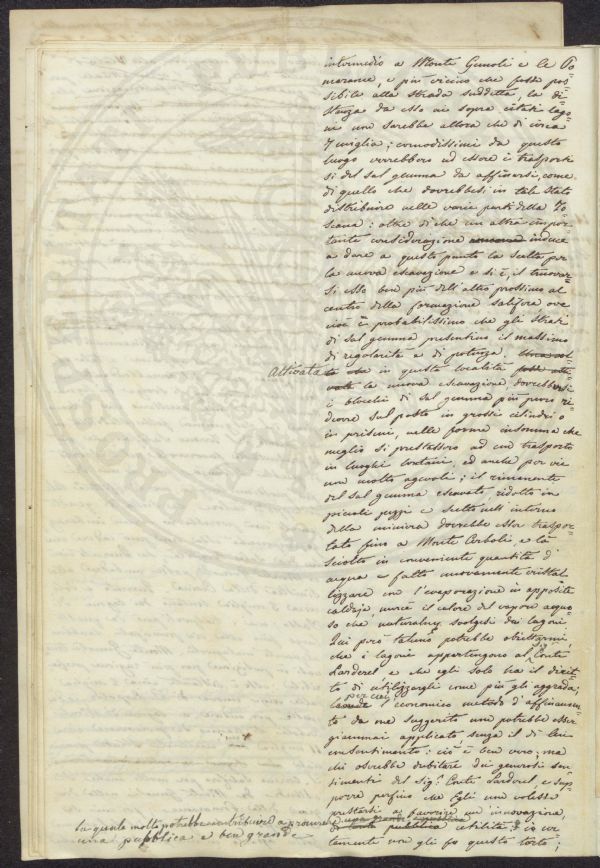 intermedio a Monte Gemoli e le Po=
marance, e più vicino che fosse pos=
sibile alla strada suddetta, la di=
stanza da esso ai sopra citati lago=
ni non sarebbe allora che di circa
7 miglia; comodissimi da questo
luogo verrebbero ad essere i traspor=
ti del sal gemma da affinarsi, come
di quello che dovrebbesi in tale stato
distribuire nelle varie parti della To=
scana: oltre di che un altra impor=
tante considerazione induce
a dare a questo punto la scelta per
la nuova escavazione e si è, il trovar=
si esso ben più dell'altro prossimo al
centro della formazione salifera ove
cioè è probabilissimo che gli strati
di sal gemma presentino il massimo
di regolarità e di potenza. Una vol=
Attivata ta che in questa località fosse atti=
vata la nuova escavazione, dovrebbersi
i blocchi di sal gemma più puro ri=
durre sul posto in grossi cilindri o
in prismi, nelle forme insomma che
meglio si prestassero ad un trasporto
in luoghi lontani, ed anche per vie
non molto agevoli; il rimanente
del sal gemma escavato, ridotto in
piccoli pezzi e scelto nell'interno
della miniera dovrebbe esser traspor=
tato fino a Monte Cerboli, e là
sciolto in conveniente quantità d'
acqua e fatto nuovamente cristal=
lizzare con l'evaporazione in apposite
caldaje, mercè il calore del vapore acquo=
so che naturalm. svolgesi dai lagoni
Qui però taluno potrebbe obiettarmi,
che i lagoni appartengono al Sig. Conte
Larderel e che egli solo ha il dirit=
to di utilizzargli come più gli aggrada;
per cui l'economico metodo d'affinamen=
to da me suggerito non potrebbe esser
giammai applicato senza il di lui
consentimento: ciò è ben vero; ma
chi oserebbe dubitare dei generosi sen=
timenti del Sig. Conte Larderel, e sup=
porre perfino che Egli non volesse
prestarsi a favorire un'innovazione,
la quale molto potrebbe contribuire a procurare una grande
una pubblica e ben grande di tanta pubblica utilità? io cer=
tamente non gli fo questo torto;